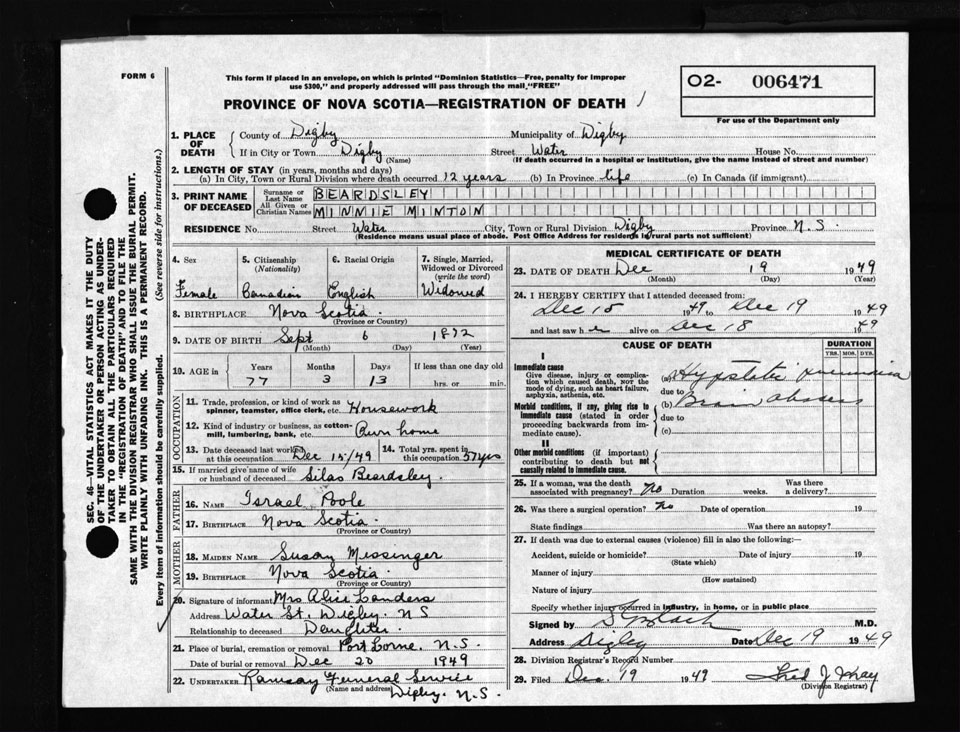 FORM 6
This form if placed in an envelope, on which is printed "Dominion Statistics—Free, penalty for improper
use $300," and properly addressed will pass through the mail "FREE"
PROVINCE OF NOVA SCOTIA—REGISTRATION OF DEATH
O2- 006471
For use of the Department only
1. PLACE OF DEATH County of Digby Municipality of Digby
If in City or Town Digby (Name) Street Water House No.
(If death occurred in a hospital or institution, give the name instead of street and number)
2. LENGTH OF STAY (in years, months and days)
(a) In City, Town or Rural Division where death occurred 12 years (b) In Province life (c) In Canada (if immigrant)
3. PRINT NAME OF DECEASED Surname or Last Name BEARDSLEY
All Given or Christian Names MINNIE MINTON
RESIDENCE No. Street Water City, Town or Rural Division Digby Province N.S.
(Residence means usual place of abode. Post Office Address for residents in rural parts not sufficient)
4. Sex Female
5. Citizenship (Nationality) Canadian
6. Racial Origin English
7. Single, Married, Widowed or Divorced (write the word) Widowed
8. BIRTHPLACE Nova Scotia
(Province or Country)
9. DATE OF BIRTH Sept 6 1872
(Month) (Day) (Year)
10. AGE in Years 77 Months 3 Days 13 If less than one day old hrs. or min.
OCCUPATION
11. Trade, profession, or kind of work as spinner, teamster, office clerk, etc. Housework
12. Kind of industry or business, as cotton-mill, lumbering, bank, etc. Own home
13. Date deceased last worked at this occupation Dec 15/49 14. Total yrs. spent in this occupation 57 yrs
15. If married give name of wife or husband of deceased Silas Beardsley.
FATHER
16. NAME Israel Poole
17. BIRTHPLACE Nova Scotia.
(Province or Country)
MOTHER
18. MAIDEN NAME Susan Messinger
19. BIRTHPLACE Nova Scotia.
(Province or Country)
20. Signature of informant Mrs Alice Landers
Address Water St. Digby. N S
Relationship to deceased Daughter.
21. Place of burial, cremation or removal Port Lorne. N.S.
Date of burial or removal Dec 20 1949
22. UNDERTAKER Ramsay Funeral Service
(Name and address) Digby. N.S.
MEDICAL CERTIFICATE OF DEATH
23. DATE OF DEATH Dec 19 1949
(Month) (Day) (Year)
24. I HEREBY CERTIFY that I attended deceased from:
Dec 15 1949 to Dec 19 1949
and last saw her alive on Dec 18 1949
CAUSE OF DEATH DURATION
YRS. MOS. DYS.
I
Immediate cause
Give disease, injury or complication which caused death, NOT the mode of dying, such as heart failure, asphyxia, asthenia, etc.
(a) Hypostatic pneumonia
due to
Morbid conditions, if any, giving rise to immediate cause (stated in order proceeding backwards from immediate cause).
(b) Brain abscess
due to
(c)
II
Other morbid conditions (if important) contributing to death but not causally related to immediate cause.
25. If a woman, was the death associated with pregnancy? No Duration weeks. Was there a delivery?
26. Was there a surgical operation? No Date of operation 19
State findings Was there an autopsy?
27. If death was due to external causes (violence) fill in also the following:—
Accident, suicide or homicide? Date of injury 19
(State which)
Manner of injury
(How sustained)
Nature of injury
Specify whether injury occurred in industry, in home, or in public place
Signed by M.D.
Address Digby Date Dec 19 1949
28. Division Registrar's Record Number
29. Filed Dec. 19 1949 Fred J
(Division Registrar)
SEC. 46—VITAL STATISTICS ACT MAKES IT THE DUTY
OF THE UNDERTAKER OR PERSON ACTING AS UNDER-
TAKER TO OBTAIN ALL THE PARTICULARS REQUIRED
IN THE "REGISTRATION OF DEATH" AND TO FILE THE
SAME WITH THE DIVISION REGISTRAR WHO SHALL ISSUE THE BURIAL PERMIT.
WRITE PLAINLY WITH UNFADING INK. THIS IS A PERMANENT RECORD.
Every item of information should be carefully supplied. (See reverse side for instructions.)